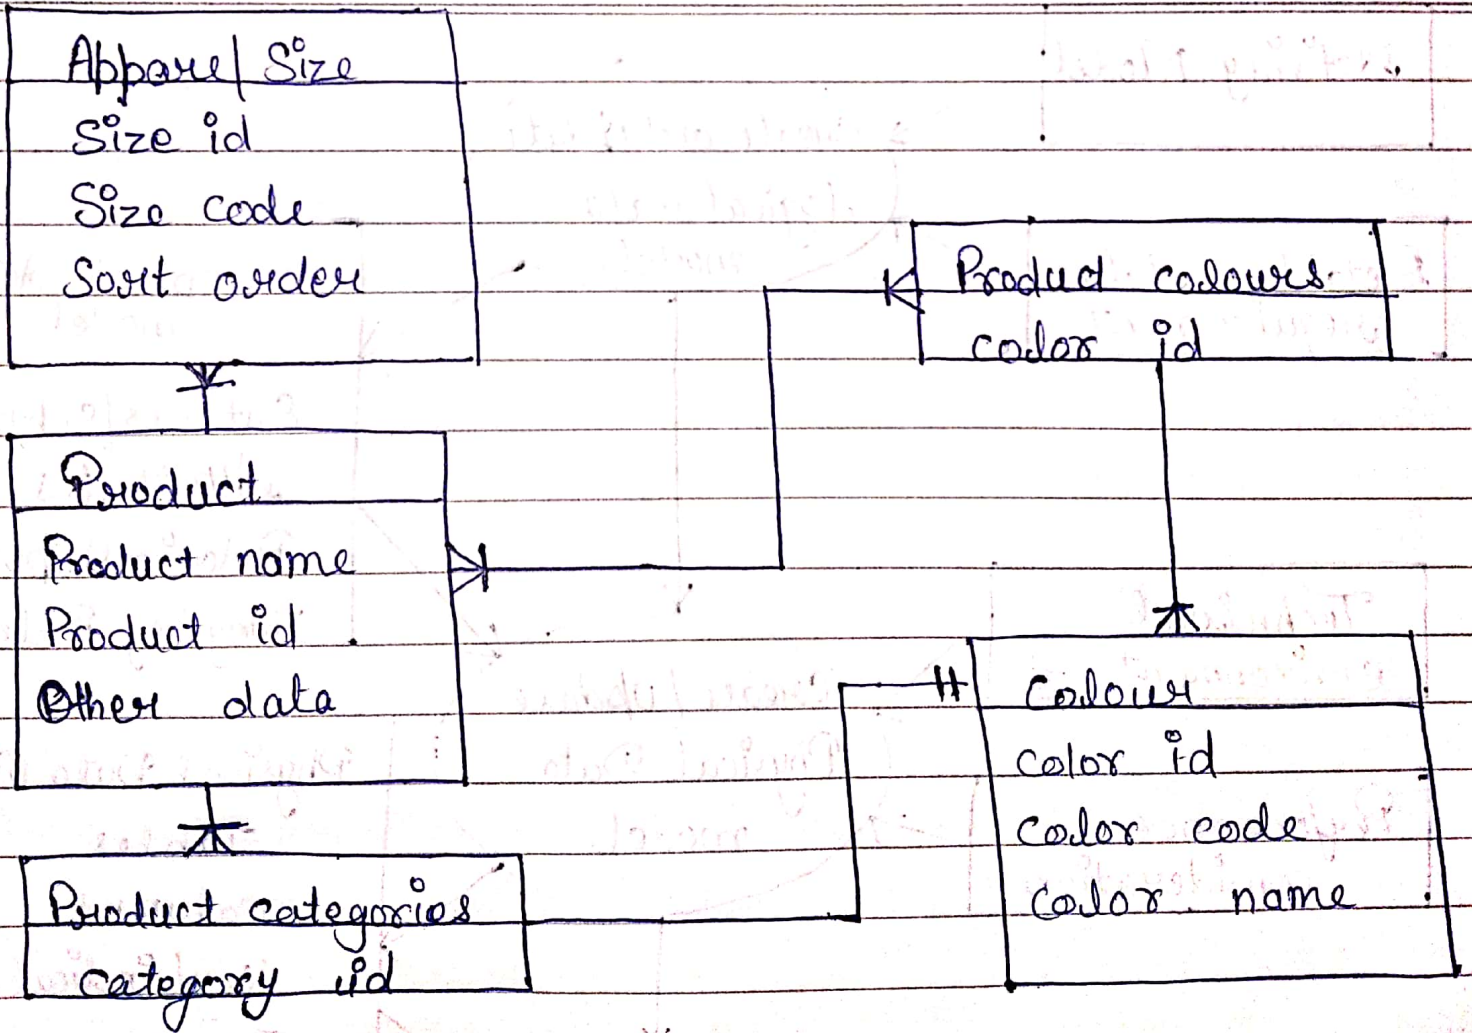 Apparel Size
Size id
Size code
Sort order
Product colours
color id
Product
Product name
Product id
Other data
Colour
color id
color code
color name
Product categories
category id